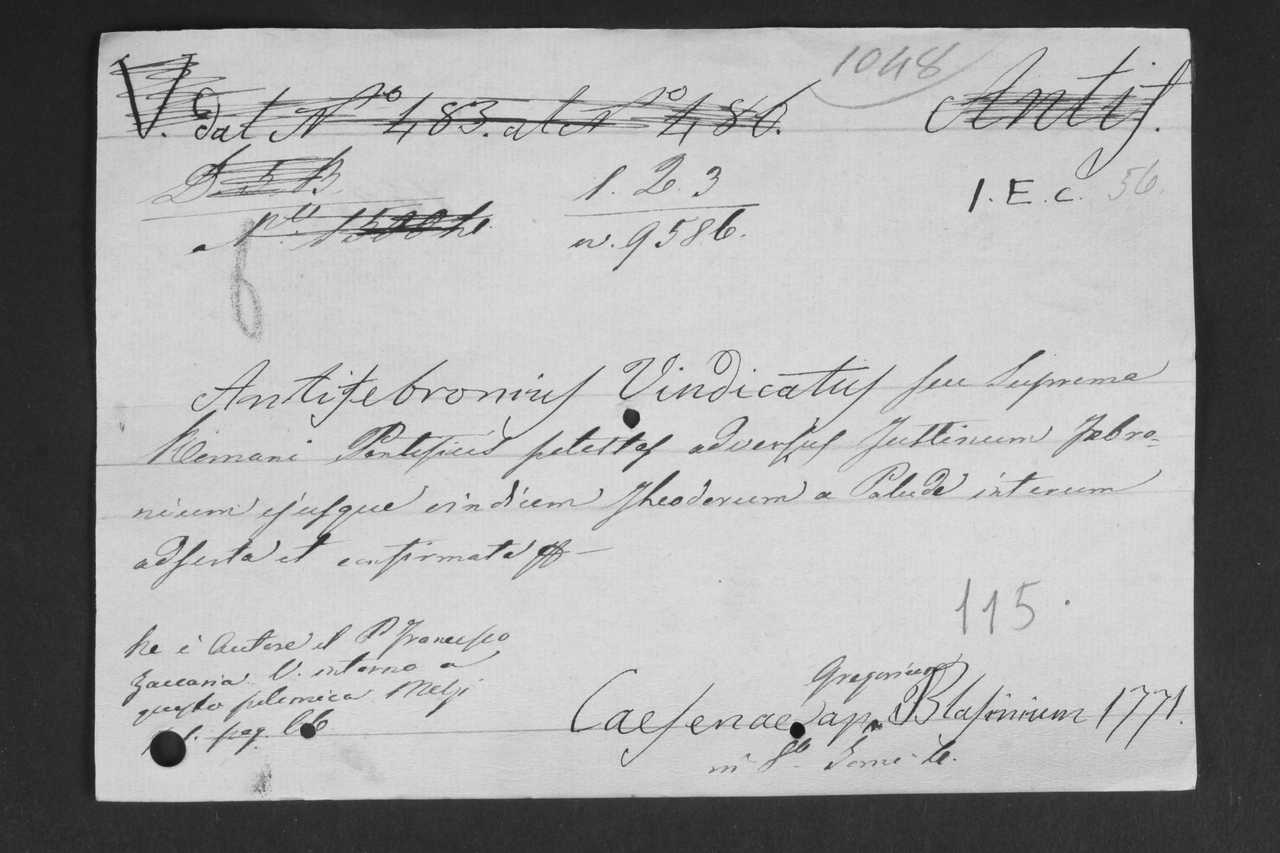 1048
V. dal N.o 483. al N.o 486. Antif.
D. 5 B 1. 2. 3 I. E. c. 56.
n. 9586.
Antifebronius Vindicatus seu Suprema
Romani Pontificis potestas adversus Justinum Febro=
nium ejusque vindicem Theodorum a Palude iterum
adserta et confirmata
115.
Ne è Autore il P. Francesco
Zaccaria V. intorno a
questa polemica Melzi
pag. 66
Caesenae ap. Gregorium Blasinium 1771.
in 8.o Tomi 4.